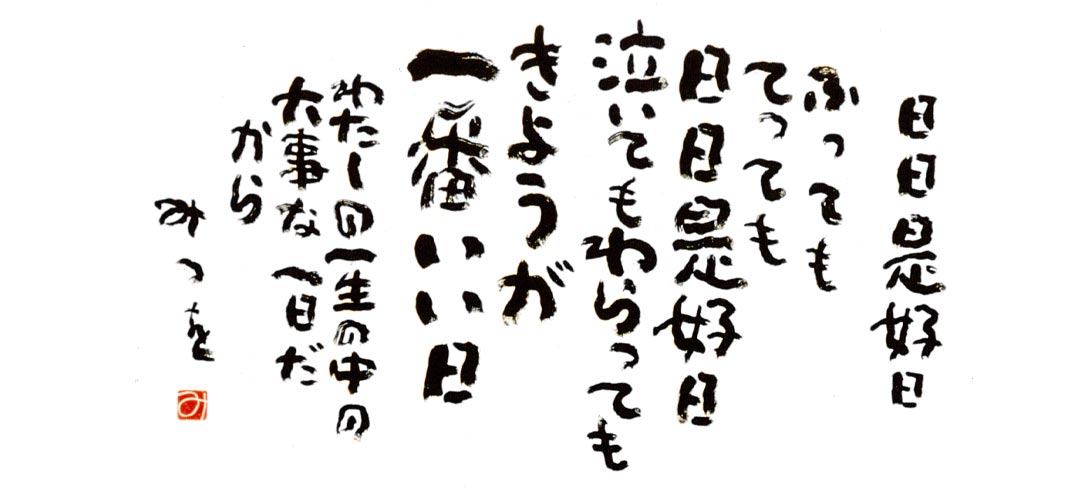 日日是好日
ふっても
てっても
日日是好日
泣いてもわらっても
きようが
一番いい日
わたしの一生の中の
大事な一日だ
から
みつを
み